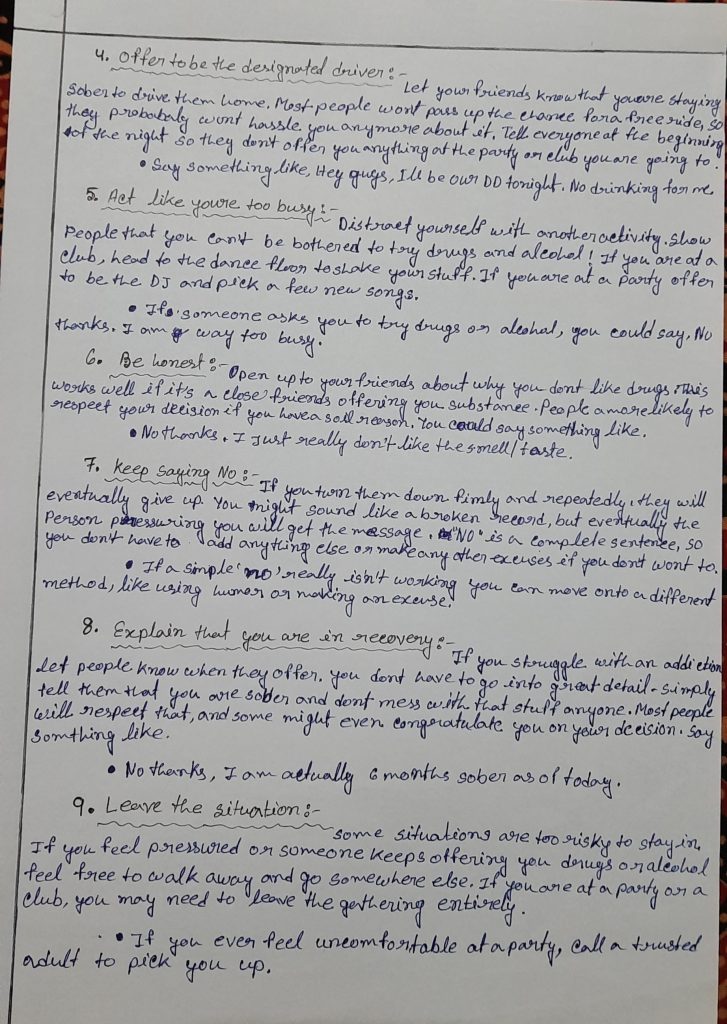 4. Offer to be the designated driver :-
Let your friends know that youare staying
Sober to drive them home. Most people wont pass up the chance for a free ride, so
they probobaly wont hassle you anymore about it. Tell everyone at the beginning
of the night so they don't offer you anything at the party or club you are going to.
• Say something like, Hey guys, I'll be our DD tonight. No drinking for me.
5. Act like youre too busy :-
Distract yourself with another activity. Show
People that you can't be bothered to try drugs and alcohol! If you are at a
club, head to the dance floor to shake your stuff. If you are at a party offer
to be the DJ and pick a few new songs.
• If someone asks you to try drugs or alcohol, you could say, No
thanks. I am way too busy.
6. Be honest :-
Open up to your friends about why you dont like drugs. This
works well if it's a close friends offering you substance. People a more likely to
respect your decision if you have a soil reason. You could say something like.
• No thanks. I Just really don't like the smell/taste.
7. Keep saying No :-
If you turn them down fimly and repeatedly, they will
eventually give up. You might sound like a broken record, but eventually the
Person pressuring you will get the message. "NO" is a complete sentence, so
you don't have to add anything else or make any other excuses if you dont wont to.
• If a simple 'no' really isn't working you can move onto a different
method, like using humor or making an excuse.
8. Explain that you are in recovery :-
If you struggle with an addiction
let people know when they offer. you dont have to go into great detail - simply
tell them that you are sober and dont mess with that stuff anyone. Most people
will respect that, and some might even congratulate you on your decision. say
somthing like.
• No thanks, I am actually 6 months sober as of today.
9. Leave the situation :-
some situations are too risky to stay in.
If you feel pressured or someone keeps offering you drugs or alcohol
feel free to walk away and go somewhere else. If you are at a party or a
club, you may need to leave the gathering entirely.
• If you ever feel uncomfortable at a party, call a trusted
adult to pick you up.